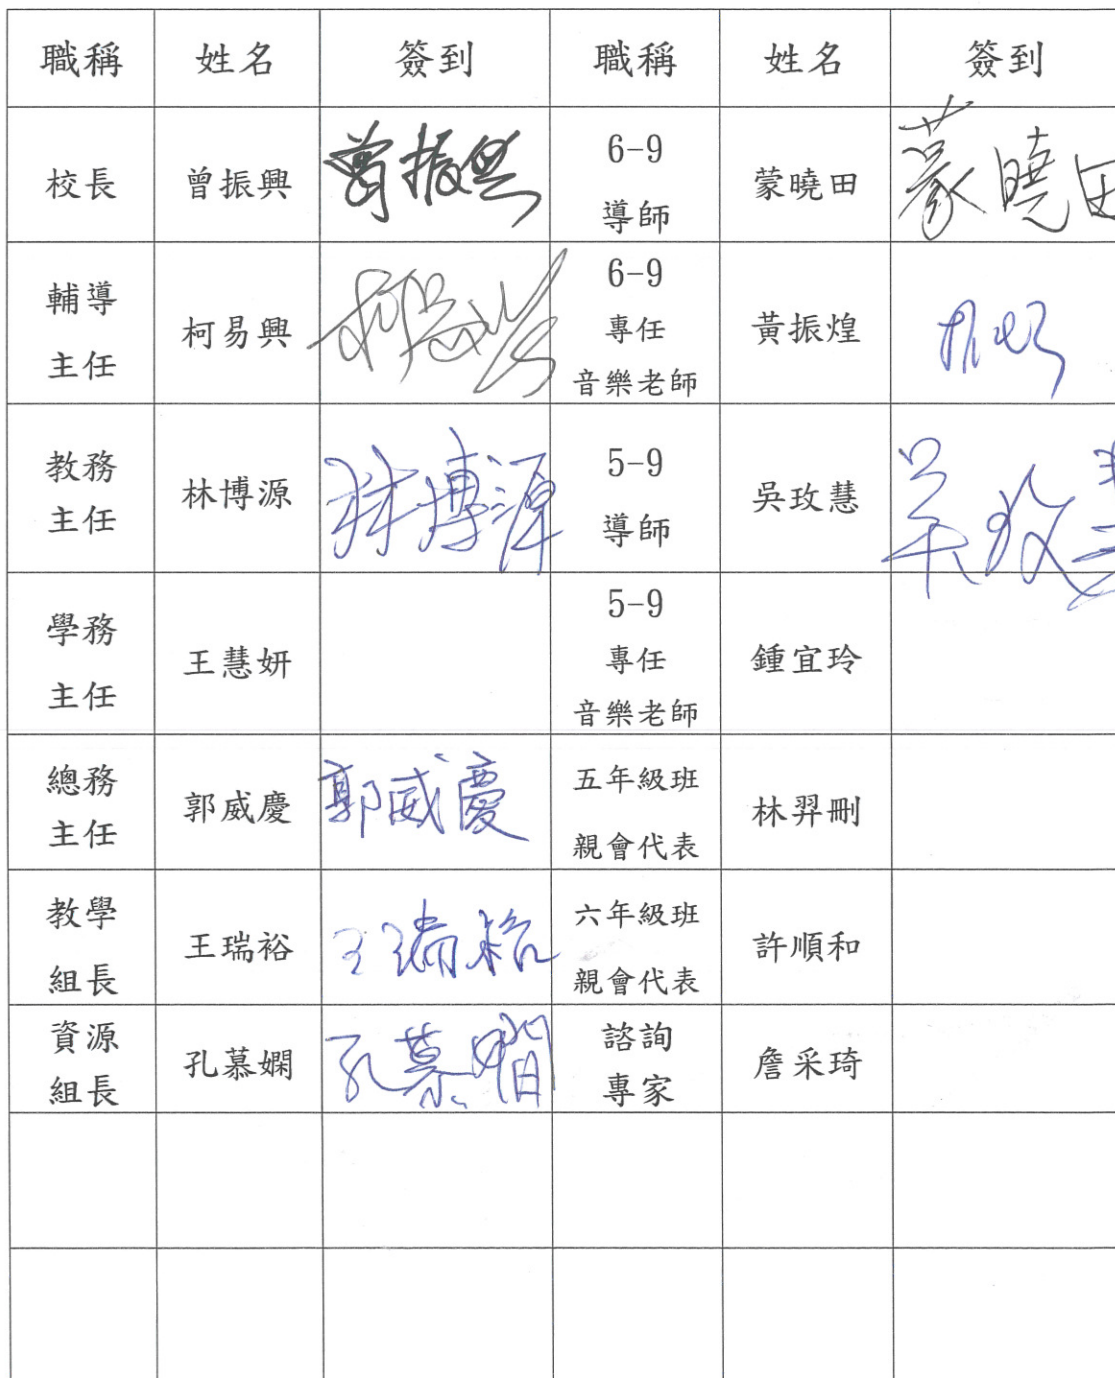 職稱 姓名 簽到 職稱 姓名 簽到
校長 曾振興 曾振興 6-9 導師 蒙曉田 蒙曉田
輔導 主任 柯易興 柯易興 6-9 專任 音樂老師 黃振煌
教務 主任 林博源 林博源 5-9 導師 吳玫慧 吳玫慧
學務 主任 王慧妍 5-9 專任 音樂老師 鍾宜玲
總務 主任 郭威慶 郭威慶 五年級班 親會代表 林羿刪
教學 組長 王瑞裕 王瑞裕 六年級班 親會代表 許順和
資源 組長 孔慕嫻 孔慕嫻 諮詢 專家 詹采琦